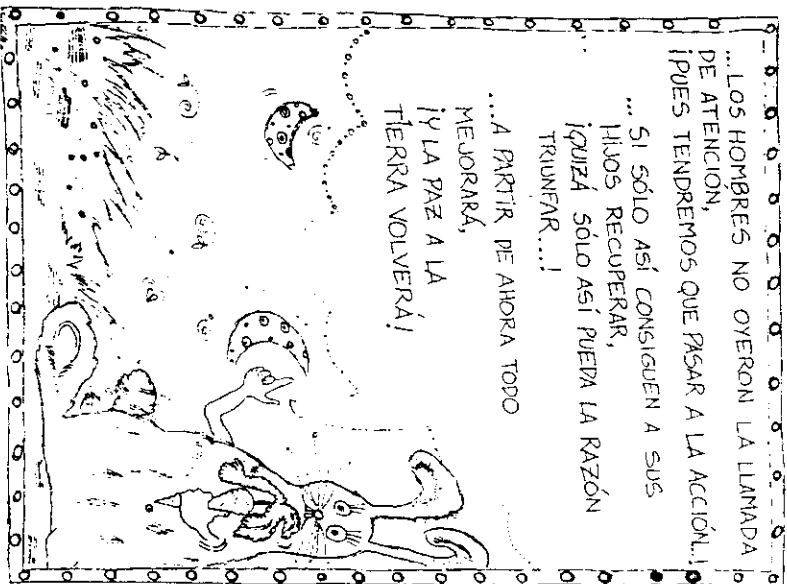 ...LOS HOMBRES NO OYERON LA LLAMADA
DE ATENCIÓN,
¡PUES TENDREMOS QUE PASAR A LA ACCIÓN...
... SI SÓLO ASÍ CONSIGUEN A SUS
HIJOS RECUPERAR,
¡QUIZÁ SÓLO ASÍ PUEDA LA RAZÓN
TRIUNFAR...!
...A PARTIR DE AHORA TODO
MEJORARÁ,
¡Y LA PAZ A LA
TIERRA VOLVERÁ!